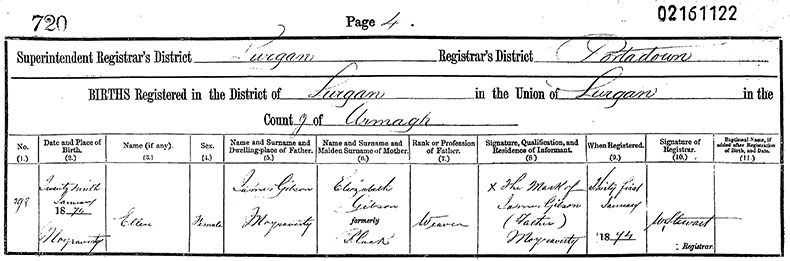 720 Page 4. 02161122
Superintendent Registrar's District Lurgan Registrar's District Portadown
BIRTHS Registered in the District of Lurgan in the Union of Lurgan in the
County of Armagh
No. Date and Place of Birth. Name (if any). Sex. Name and Surname and Dwelling-place of Father. Name and Surname and Maiden Surname of Mother. Rank or Profession of Father. Signature, Qualification, and Residence of Informant. When Registered. Signature of Registrar. Baptismal Name, if added after Registration of Birth, and Date.
(1.) (2.) (3.) (4.) (5.) (6.) (7.) (8) (9.) (10.) (11.)
298
Twenty ninth
January
1874
Moyraverty
Ellen
Female
James Gibson
Moyraverty
Elizabeth
Gibson
formerly
Weaver
X The Mark of
James Gibson
(Father)
Moyraverty
Thirty first
January
1874
W Stewart
Registrar.